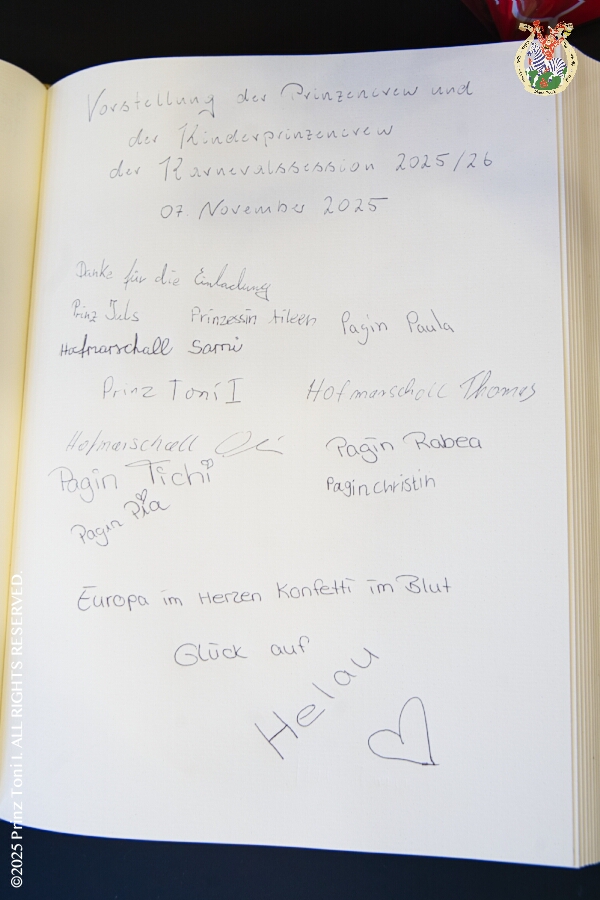 Vorstellung der Prinzencrew und
der Kinderprinzencrew
der Karnevalssession 2025/26
07. November 2025
Danke für die Einladung
Prinz Jels Prinzessin Aileen Pagin Paula
Hofmarschall Sami
Prinz Toni I Hofmarschall Thomas
Hofmarschall
Pagin Rabea
Pagin Tichi
Pagin christin
Pagin Pia
Europa im Herzen Konfetti im Blut
Glück auf
Helau
©2025 Prinz Toni I. ALL RIGHTS RESERVED.